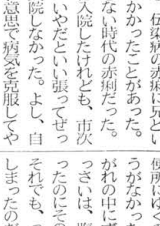 伝染病の赤痢に兄とい
かかったことがあった。
ない時代の赤痢だった。
入院したけれども、市次
いやだといい張ってぜっ
院しなかった。よし、自
意思で病気を克服してや
便所にゆ
うがなかった
がれの中にず
っさいは、
ったのにその
それでも、っ
しまったのだ